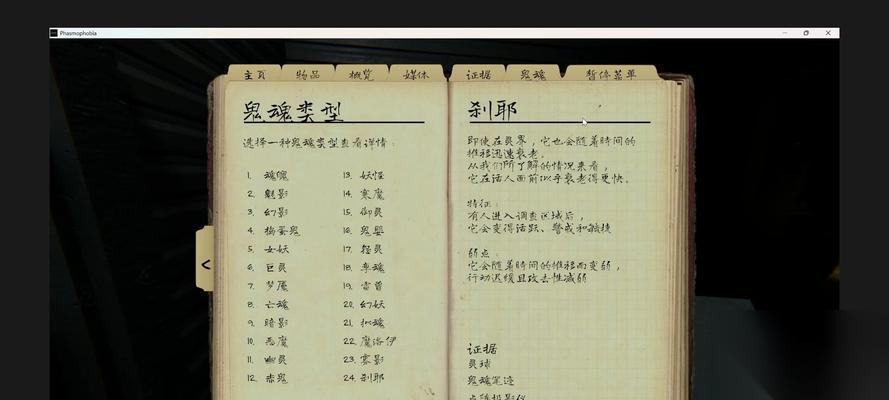 Phasmophobia
主页 物品 概览 媒体 证据 鬼魂 暂停菜单
鬼魂类型
选择一种鬼魂类型查看详情：
1. 魂魄
2. 魅影
3. 幻影
4. 捣蛋鬼
5. 女妖
6. 巨灵
7. 梦魇
8. 亡魂
9. 暗影
10. 恶魔
11. 幽灵
12. 赤鬼
13. 妖怪
14. 寒魔
15. 御灵
16. 鬼婴
17. 怪灵
18. 孪魂
19. 雷兽
20. 幻妖
21. 拟魂
22. 魔洛伊
23. 雾影
24. 刹耶
刹耶
即使在灵界，它也会随着时间的
推移迅速衰老。
从我们所了解的情况来看，
它在活人面前似乎衰老得更快。
特征：
有人进入调查区域后，
它会变得活跃、警戒和敏捷
弱点：
它会随着时间的推移而变弱，
行动迟缓且攻击性减弱
证据
灵球
鬼魂笔迹
点阵投影仪